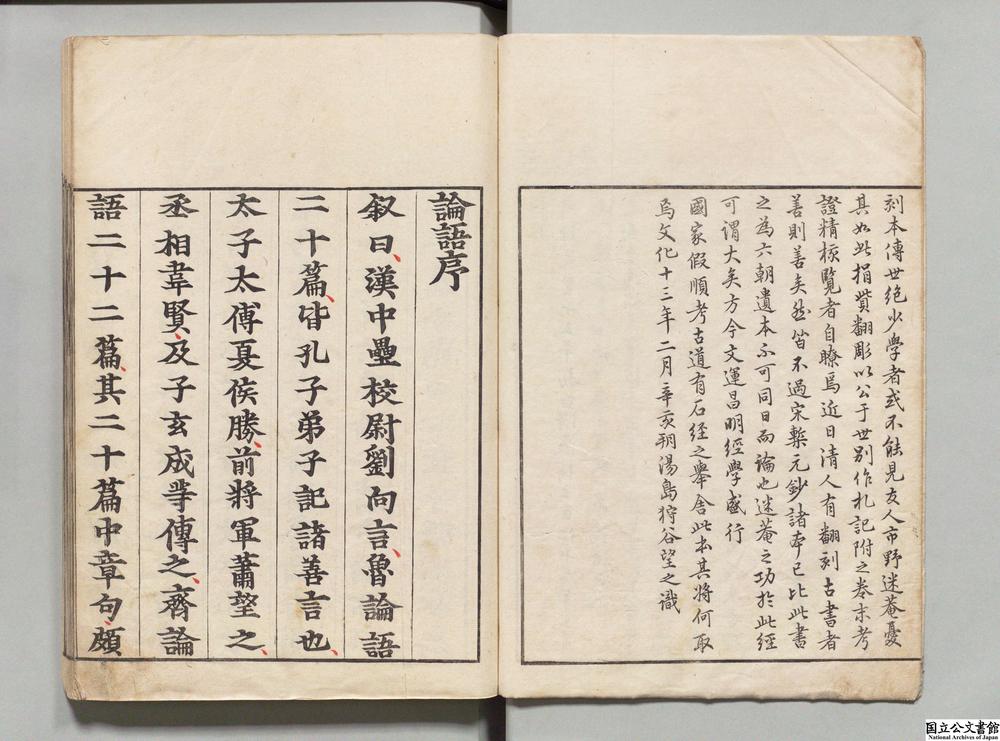 刻本傳世絶少學者或不能見友人市野迷菴憂
其如此捐貲翻彫以公于世別作札記附之卷末考
證精核覽者自瞭焉近日清人有翻刻古書者
善則善矣然皆不過宋槧元鈔諸本已比此書
之為六朝遺本不可同日而論也迷菴之功於此經
可謂大矣方今文運昌明經學盛行
國家假順考古道有石經之舉舍此本其將何取
焉文化十三年二月辛亥朔湯島狩谷望之識
論語序
叙曰漢中壘校尉劉向言魯論語
二十篇皆孔子弟子記諸善言也
太子太傅夏侯勝前將軍蕭望之
丞相韋賢及子玄成等傳之齊論
語二十二篇其二十篇中章句頗
国立公文書館
National Archives of Japan